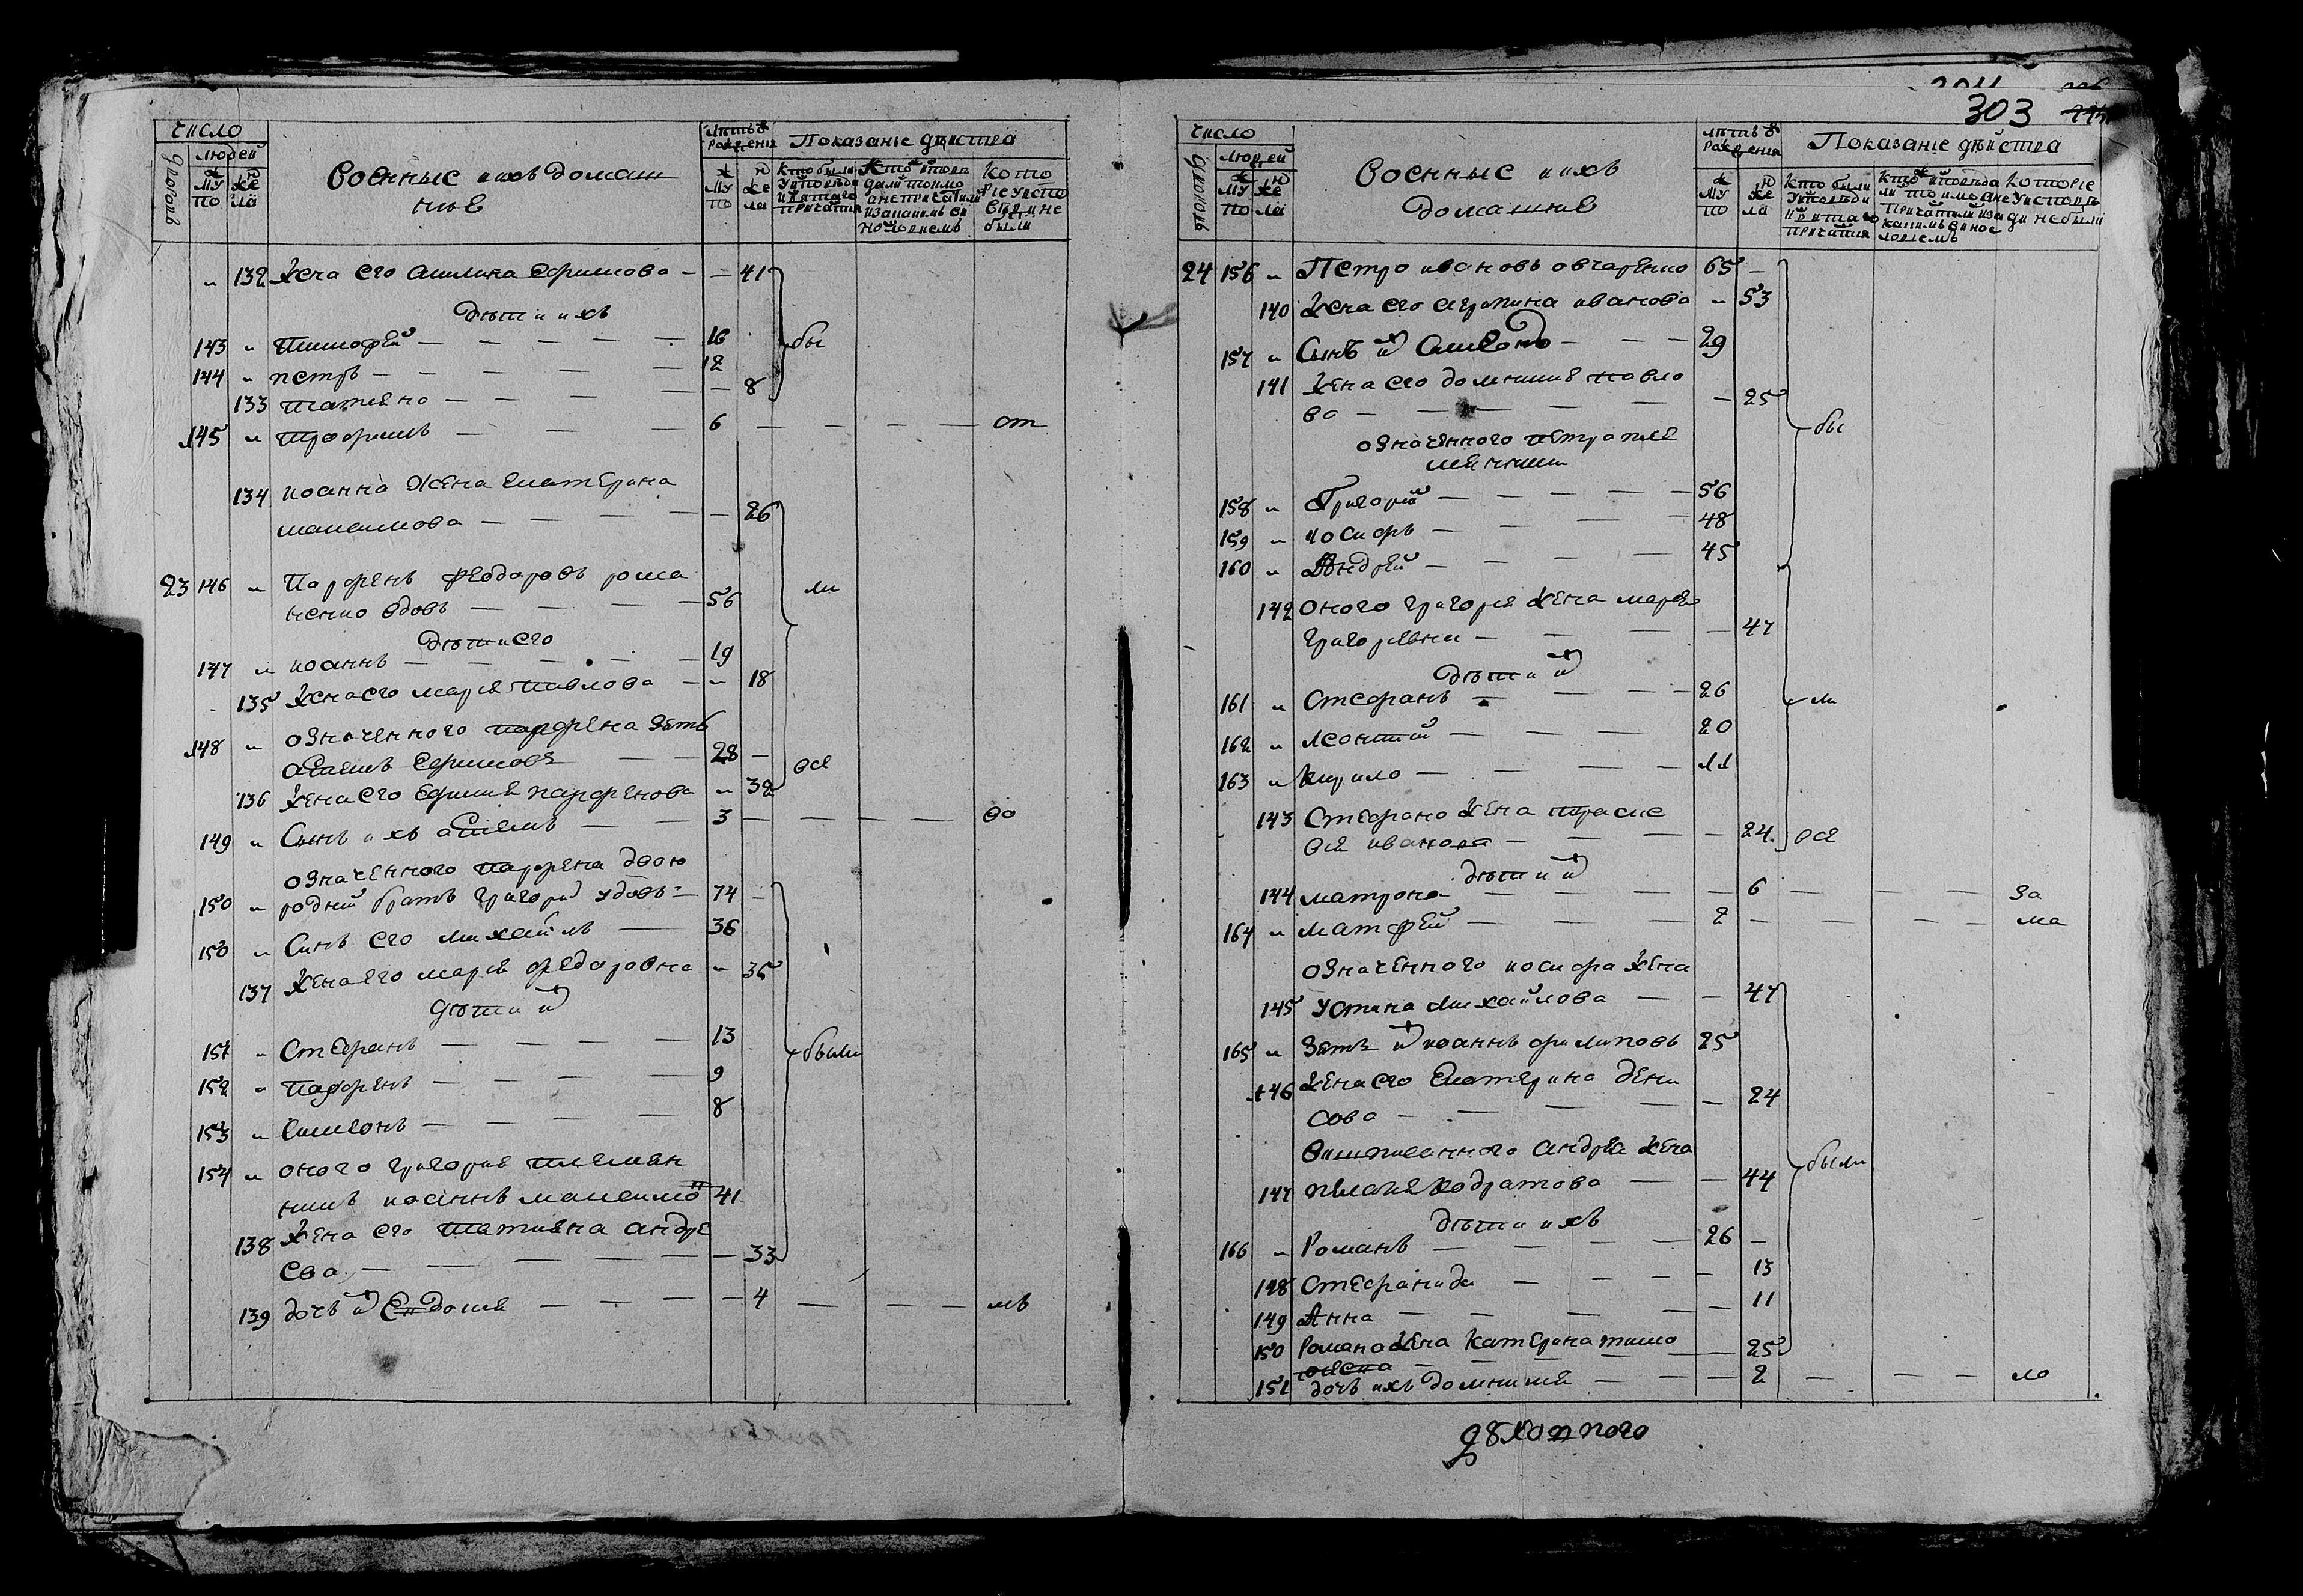 число
людей
дворовъ
муж
жен
по ла
Военные и ихъ домаш
ніе
Лѣтъ ѿ
рожденія
муж
жен
по ла
Показаніе дѣйства
Кто были
причатія
кото
рые
не
были
132 Жена его Акилина Ефимова — — 41
Дѣти ихъ
143 „ Тимофей — — — — — 16
бы
144 „ петръ — — — — — 12
133 татіяна — — — — — 8
145 „ трофимъ — — — 6 — — — — от
134 иоанна жена екатерина
максимова — — — — — 26
23 146 „ Парфенъ феодоровъ рома
ненко вдовъ — — — — 56
ли
Дѣти его
147 „ иоаннъ — — — — — 19
135 Жена его марія павлова — „ 18
148 „ означенного парфена зять
Ефимовъ — — 28 —
все
136 Жена его Ефимия парфенова „ 32
149 „ Сынъ ихъ — — 3 — — — — во
означенного парфена двою
150 „ родний братъ григорий удовъ — 74 —
150 „ Синъ его михайлъ — 36
137 Жена его марія федоровна „ 35
дѣти ихъ
151 „ Стефанъ — — — — 13
были
152 „ парфенъ — — — — 9
153 „ Симеонъ — — — — 8
154 „ оного григория племян
никъ иоаннъ максимо 41
138 Жена его татияна андре
ева — — — — — 33
139 дочь ихъ Евдокия — — — — 4 — — — мъ
303
число
людей
дворовъ
муж
жен
по ла
Военные и ихъ
домашние
Лѣтъ ѿ
рожденія
муж
жен
по ла
Показаніе дѣйства
Кто были
причатія
которіе
не были
24 156 „ Петро ивановъ овчаренко 65 —
140 Жена его агрипина иванова „ 53
157 „ Сынъ ихъ Симеонъ — — — 29
141 Жена его домникия павло
ва — — — — — — 25
бы
означенного петра пле
мянники
158 „ Григорий — — — — — 56
159 „ иосифъ — — — — 48
160 „ Андрей — — — — 45
142 оного григорія жена марфа
григориевна — — — — 47
Дѣти ихъ
161 „ Стефанъ — — — — 26
ли
162 „ леонтий — — — — 20
163 „ Кирило — — — — 11
143 Стефана жена параске
вия иванова — — — — 24
все
дѣти ихъ
144 матрона — — — — 6 — — — за
164 „ матфей — — — — 2 — — — — ма
означенного иосифа жена
145 Устина Михайлова — — 47
165 „ Зять ихъ иоаннъ филиповъ 25
146 Жена его Екатерина дени
сова — — — — — 24
Вишписанного андрѣа жена
были
147 пелагия кодратова — — 44
дѣти ихъ
166 „ Романъ — — — — 26 —
148 Стефанида — — — — 13
149 Анна — — — — — 11
150 Романа жена катерина тимо
— — — — — 25
151 дочь ихъ домникия — — — 2 — — — ло